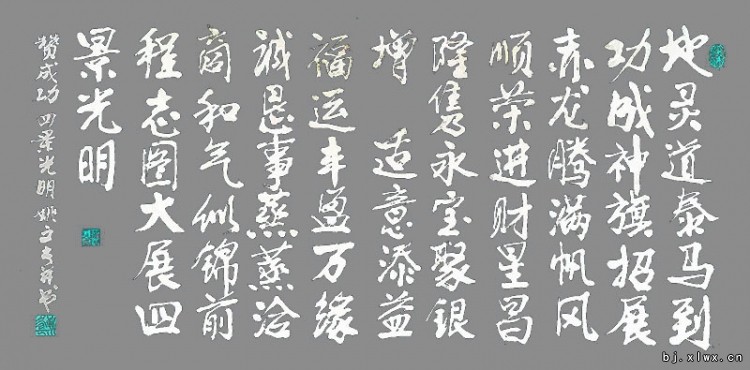 地灵道泰马到
功成神旗招展
赤龙腾满帆风
顺荣进财星昌
隆隽永宝聚银
增 适意添益
福运丰盈万缘
诚恳事蒸蒸洽
商和气似锦前
程志图大展四
景光明
赞成功四景光明 姚
bj.xlwx.cn